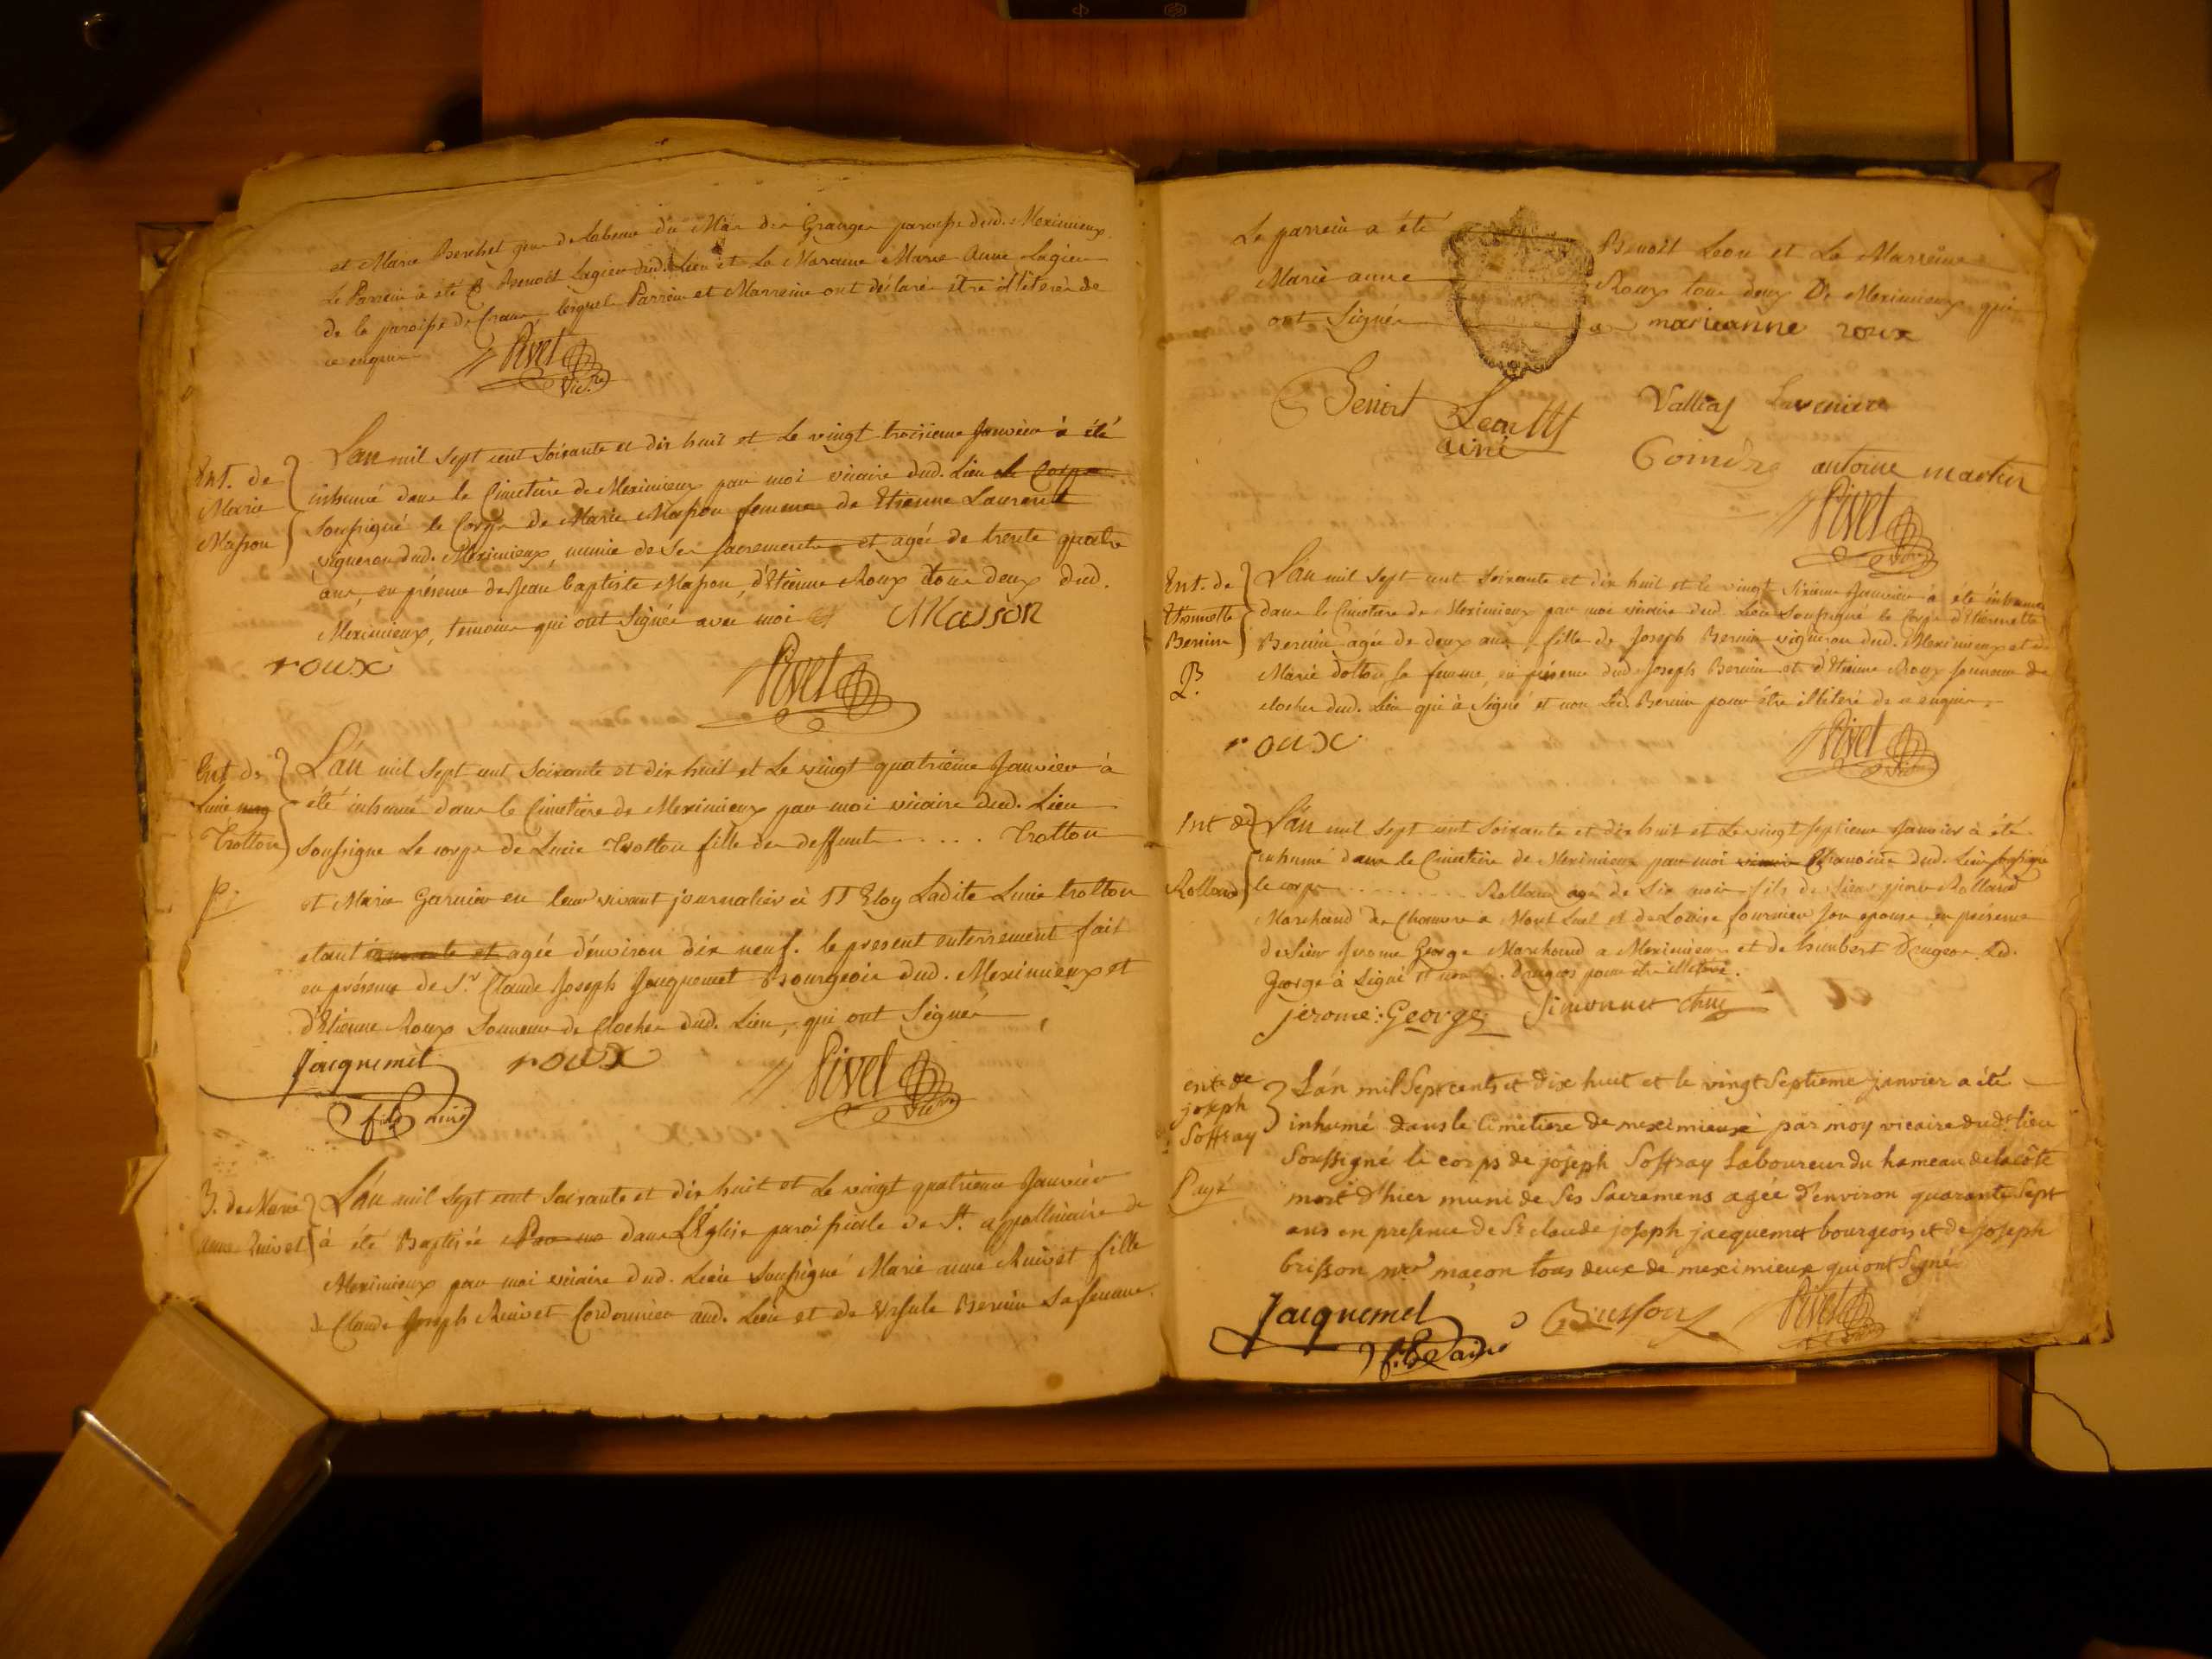 et Marie Berchet de Labeaux du Mas des Granges paroisse dud. Meximieux
Le Parrein a été Benoit Lagier dud. Lieu et La Maraine Marie Anne Lagier
de la paroisse de Crans, lesquels Parrein et Marreine ont déclaré être illiterés de
ce enquis
Pivet
Vic.re
Ent. de
Marie
Masson
L'an mil sept cent soixante et dix huit et Le vingt troisieme Janvier à été
inhumé dans le Cimetiere de Meximieux par moi vicaire dud. Lieu le Corps
Soussigné le Corps de Marie Masson femme de Etienne Laurent
vigneron dud. Meximieux, munie de Ses Sacrements et agée de trente quatre
ans, en présence de Jean baptiste Masson, d'Etienne Roux tous deux dud.
Meximieux, temoins qui ont Signés avec moi
Masson
roux
Pivet
Ent. de
Lucie
Trotton
p.
L'an mil Sept cent Soixante et dix huit et Le vingt quatrieme Janvier à
été inhumé dans le Cimetiere de Meximieux par moi vicaire dud. Lieu
Soussigné Le corps de Lucie Trotton fille des deffunts ..... Trotton
et Marie Garnier en leur vivant journalier à St Eloy Ladite Lucie trotton
etant agée d'environ dix neuf. le present enterrement fait
en présence de Sr Claude Joseph Jacquemet Bourgeois dud. Meximieux et
d'Etienne Roux Sonneur de Cloches dud. Lieu, qui ont Signés
Jacquemet
fils ainé
roux
Pivet
Vic.re
B. de Marie
anne Ruivet
L'an mil sept cent Soixante et dix huit et Le vingt quatrieme Janvier
à été Baptisée Par moi dans L'Eglise paroissiale de St. appollinaire de
Meximieux par moi vicaire dud. Lieu soussigné Marie anne Ruivet fille
de Claude Joseph Ruivet Cordonnier aud. Lieu et de Ursule Bernin sa femme.
Le parrein a été Benoit Leon et La Marreine
Marie anne Roux tous deux De Meximieux qui
ont Signés marieanne roux
Benoit Leon
ainé
Vallias Lavenière
Goindre antoine martin
Pivet
Vic.re
Ent. de
Etiennette
Bernin
L'an mil Sept cent Soixante et dix huit et le vingt Sixieme Janvier à été inhumé
dans le Cimetiere de Meximieux par moi vicaire dud. Lieu Soussigné le Corps d'Etiennette
Bernin agée de deux ans, fille de Joseph Bernin vigneron dud. Meximieux et de
Marie dotton sa femme, en présence dud. Joseph Bernin et d'Etienne Roux Sonneur de
cloches dud. Lieu qui à Signé et non Led. Bernin pour être illiteré de ce enquis.
roux
Pivet
Vic.re
Ent de
Rolland
L'an mil Sept cent Soixante et dix huit et Le vingt Septieme Janvier à été
inhumé dans le Cimetiere de Meximieux par moi vicaire Chanoine dud. Lieu soussigné
le corps ........ Rolland agé de Six mois fils de Sieur pierre Rolland
Marchand de Chanvre a Mont Luel et de Louise fournier Son epouse en présence
de Sieur Jerome George Marchand a Meximieux et de humbert Dangeos Led.
George à Signé et non led. Dangeos pour être illiteré.
jerome: George Simonnet chne
ent. de
joseph
Soffray
Payé
L'an mil Sept cents et Dix huit et le vingt Septieme janvier a été
inhumé dans le Cimetiere de meximieux par moy vicaire dudt lieu
Soussigné le corps de joseph Soffray Laboureur du hameau de la côte
mort d'hier muni de Ses Sacremens agée d'environ quarante Sept
ans en presence de Sr claude joseph jacquemet bourgeois et de joseph
brisson mer maçon tous deux de meximieux qui ont Signé
Jacquemet
fils ainé
Brisson
Pivet